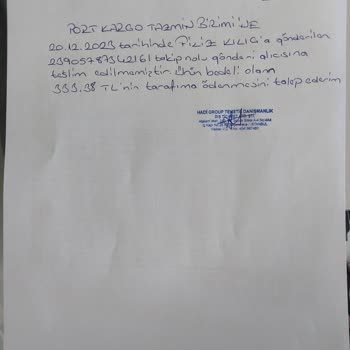 PORT KARGO TAZMİN BİRİMİ'NE
20.12.2023 tarihinde FİLİZ KILIG'a gönderilen
23905787342161 takip nolu gönderi alıcısına
teslim edilmemiştir. Ürün bedeli olan
333.38 TL'nin tarafıma ödenmesini talep ederim
HADİ-GROUP TEKSTİL DANIŞMANLIK